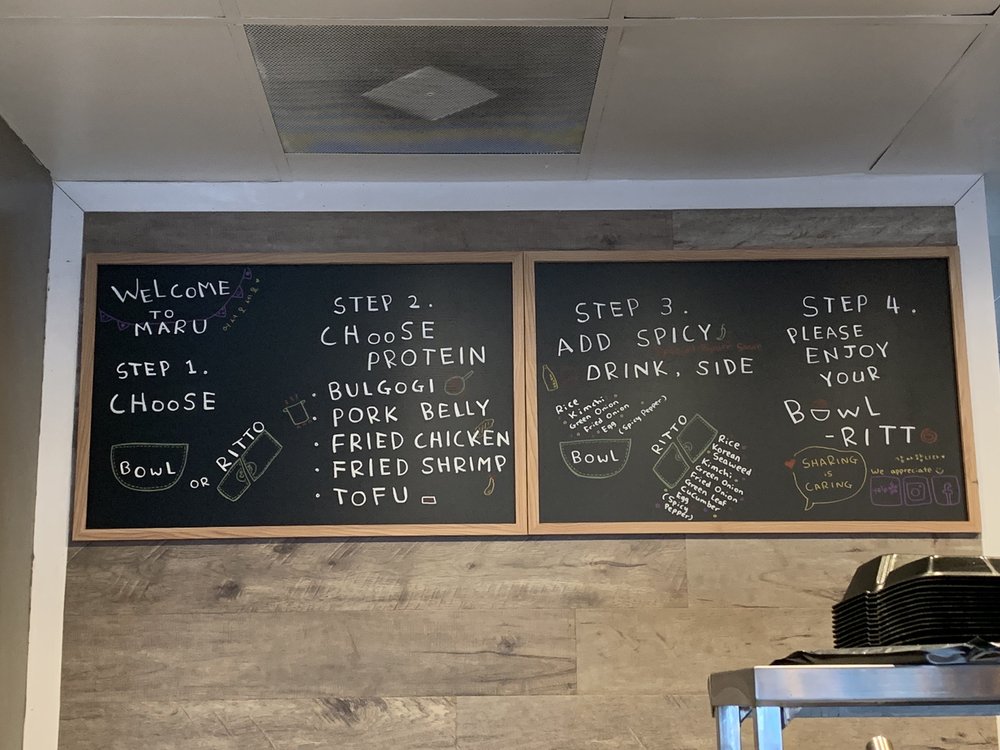 WELCOME
TO
MARU
어서오세요
STEP 1.
CHOOSE
BOWL
OR
RITTO
STEP 2.
CHOOSE
PROTEIN
• BULGOGI
• PORK BELLY
• FRIED CHICKEN
• FRIED SHRIMP
• TOFU
STEP 3.
ADD SPICY
DRINK, SIDE
Rice
Kimchi
Green Onion
Fried Onion
Egg (Spicy Pepper)
BOWL
RITTO
Rice
Korean
Seaweed
Kimchi
Green Onion
Fried Onion
Green Leaf
Cucumber
Egg
(Spicy
Pepper)
STEP 4.
PLEASE
ENJOY
YOUR
BOWL
-RITTO
SHARING
is
CARING
We appreciate
yelp
f